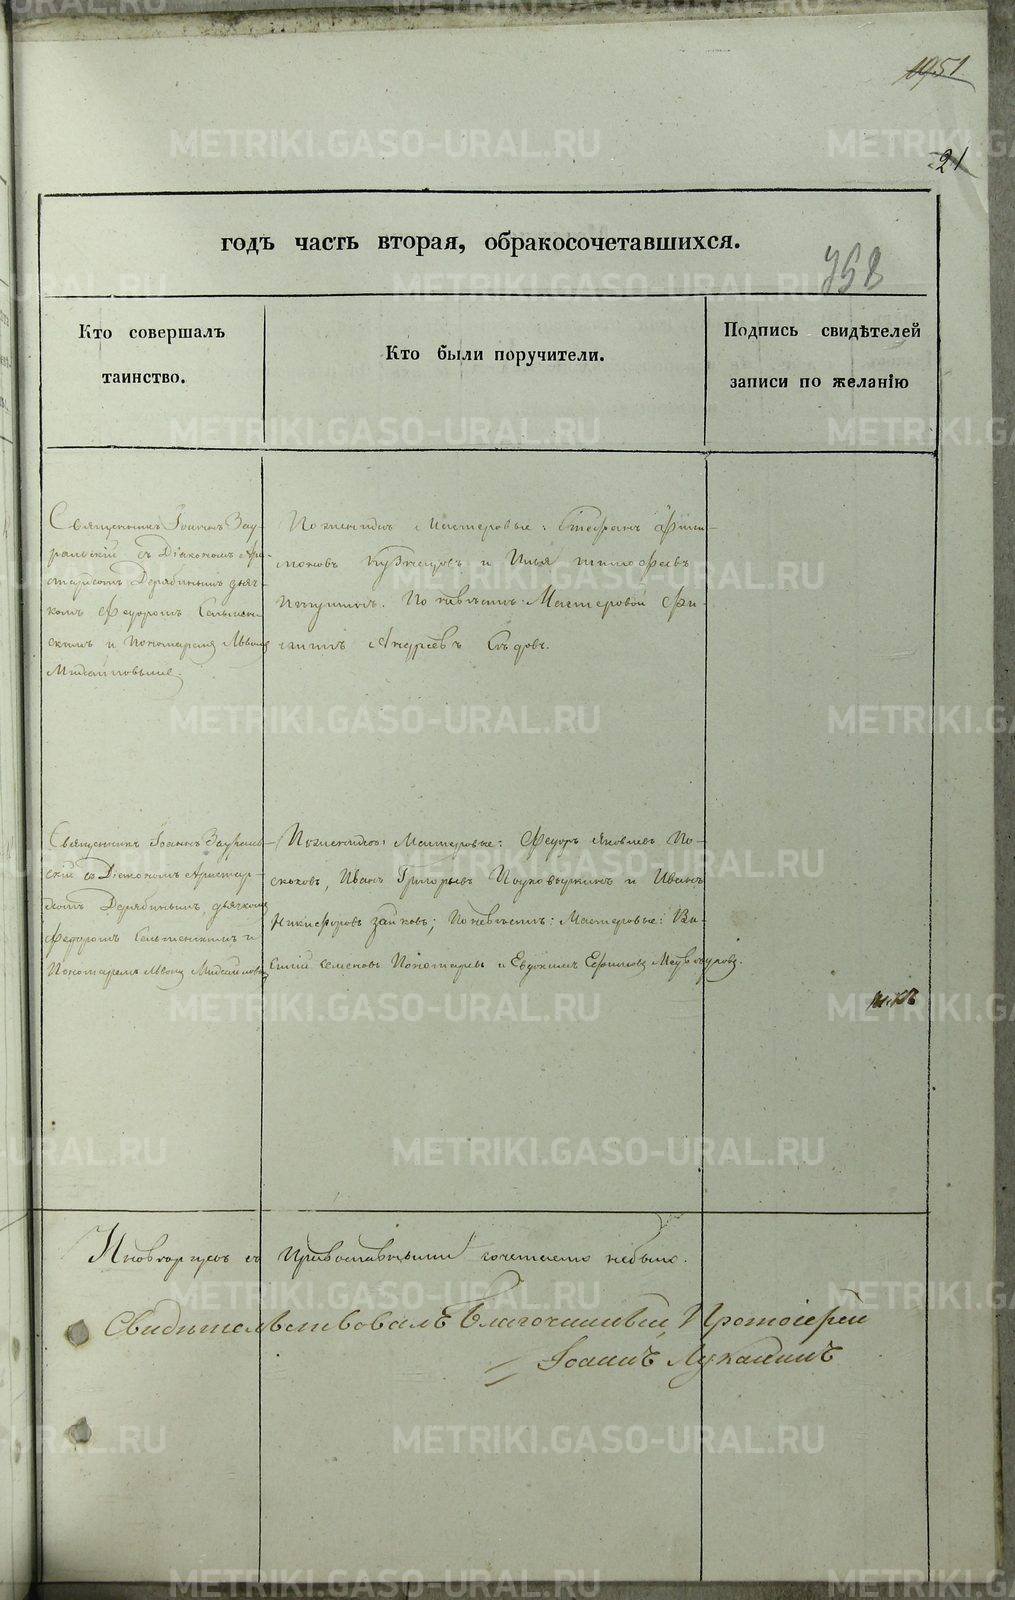 1951.
21
годъ часть вторая, обракосочетавшихся.
758
Кто совершалъ
таинство.
Кто были поручители.
Подпись свидѣтелей
записи по желанію
Священникъ Іоаннъ Зау-
ральскій съ Діакономъ Ари-
стархомъ Дерябинымъ дьяч-
комъ Федоромъ Сельмен-
скимъ и Пономаремъ Львомъ
Михайловымъ.
По женихѣ Мастеровые: Стефанъ Фили-
моновъ Кузнецовъ и Илья Тимофеевъ
По невѣстѣ: Мастеровой Фи-
липпъ Андреевъ Сѣдовъ.
Священникъ Іоаннъ Зауральс-
кій съ Діакономъ Аристар-
хомъ Дерябинымъ, дьячкомъ
Федоромъ Сельменскимъ и
Пономаремъ Львомъ Михайловымъ
По женихѣ: Мастеровые: Федоръ Яковлевъ По-
Иванъ Григорьевъ и Иванъ
Никифоровъ Зайковъ; По невѣстѣ: Мастеровые: Ва-
силій Семеновъ Пономаревъ и Евдокимъ Ефимовъ
Иновѣрцовъ съ Православными сочетаемо небыло.
Свидѣтельствовалъ Благочинный Протоіерей
Іоаннъ Луканинъ
METRIKI.GASO-URAL.RU